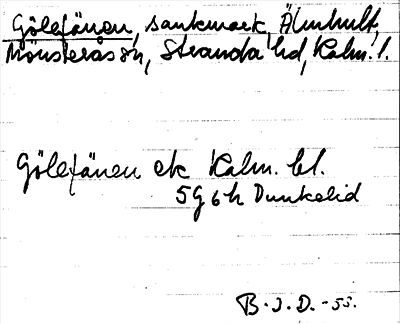 Gölefänen, sankmark, Älmhult,
Mönsterås sn, Stranda hd, Kalm. l.
Gölefänen ek Kalm. bl.
5G6h Dunkelid
B.I.D. -53.